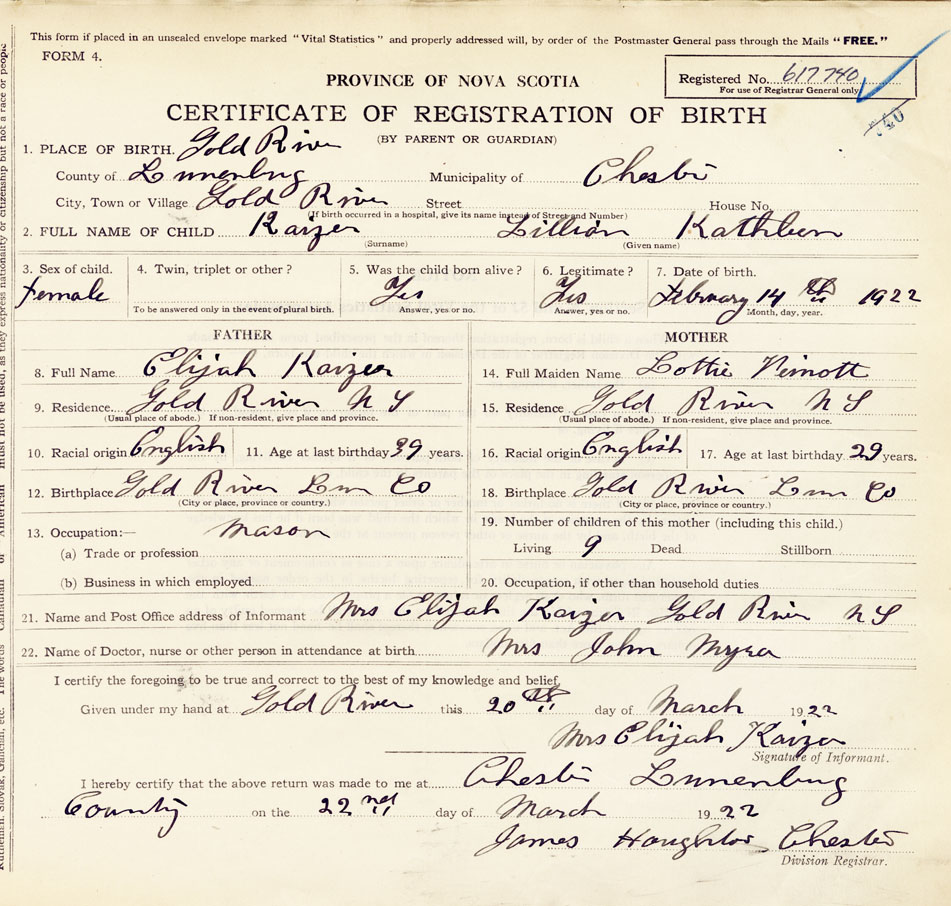 This form if placed in an unsealed envelope marked "Vital Statistics" and properly addressed will, by order of the Postmaster General pass through the Mails "FREE."
FORM 4.
PROVINCE OF NOVA SCOTIA
Registered No. 617740
For use of Registrar General only
CERTIFICATE OF REGISTRATION OF BIRTH
740
(BY PARENT OR GUARDIAN)
1. PLACE OF BIRTH. Gold River
County of Lunenbug Municipality of Chester
City, Town or Village Gold River Street House No.
(If birth occurred in a hospital, give its name instead of Street and Number)
2. FULL NAME OF CHILD Kaizer Lillian Kathleen
(Surname) (Given name)
3. Sex of child. 4. Twin, triplet or other? 5. Was the child born alive? 6. Legitimate? 7. Date of birth.
Female Yes Yes February 14 th 1922
To be answered only in the event of plural birth. Answer, yes or no. Answer, yes or no. Month, day, year.
FATHER MOTHER
8. Full Name Elijah Kaizer 14. Full Maiden Name Lottie
9. Residence Gold River N S 15. Residence Gold River N S
(Usual place of abode.) If non-resident, give place and province. (Usual place of abode.) If non-resident, give place and province.
10. Racial origin English 11. Age at last birthday 39 years. 16. Racial origin English 17. Age at last birthday 29 years.
12. Birthplace Gold River Lun Co 18. Birthplace Gold River Lun Co
(City or place, province or country.) (City or place, province or country.)
13. Occupation:— Mason 19. Number of children of this mother (including this child.)
(a) Trade or profession Living 9 Dead Stillborn
(b) Business in which employed 20. Occupation, if other than household duties
21. Name and Post Office address of Informant Mrs Elijah Kaizer Gold River N S
22. Name of Doctor, nurse or other person in attendance at birth Mrs John Myra
I certify the foregoing to be true and correct to the best of my knowledge and belief,
Given under my hand at Gold River this 20th day of March 1922
Mrs Elijah Kaizer
Signature of Informant.
I hereby certify that the above return was made to me at Chester Lunenbug
County on the 22nd day of March 1922
James Houghton Chester
Division Registrar.